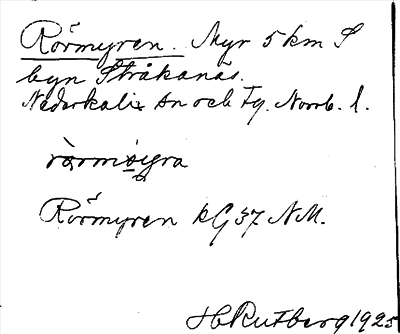 Rörmyren. Myr 5 km S
byn Stråkanäs.
Nederkalix sn och Fg. Norrb. l.
Rörmyren kG 37 NM.
H Rutberg 1925